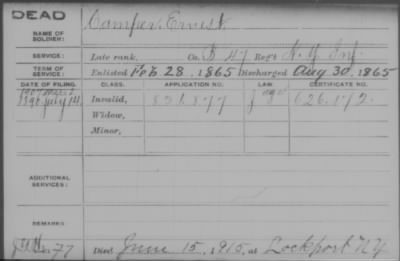 DEAD
NAME OF SOLDIER: Camper, Ernest
SERVICE: Late rank, Co. B 47 Reg't N.Y. Inf
TERM OF SERVICE: Enlisted Feb 28, 1865 Discharged Aug 30, 1865
DATE OF FILING. CLASS. APPLICATION NO. LAW. CERTIFICATE NO.
1890 July 14 Invalid,
Widow,
Minor,
ADDITIONAL SERVICES:
REMARKS:
Died June 15, 1915, at Lockport NY